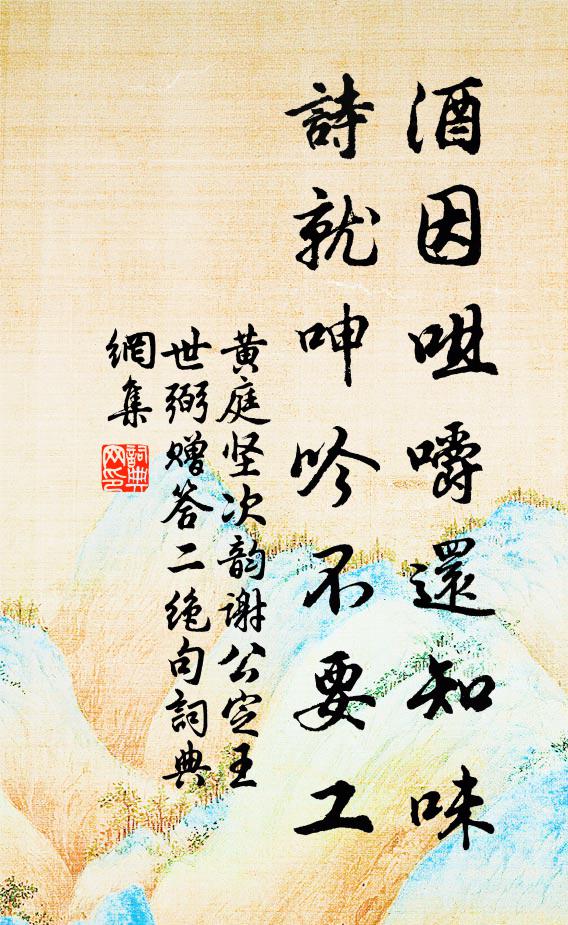 酒因咀嚼還知味
詩就呻吟不要工
黄庭坚次韵谢公定王
世弼赠答二绝句詞典
網集
詞典網印